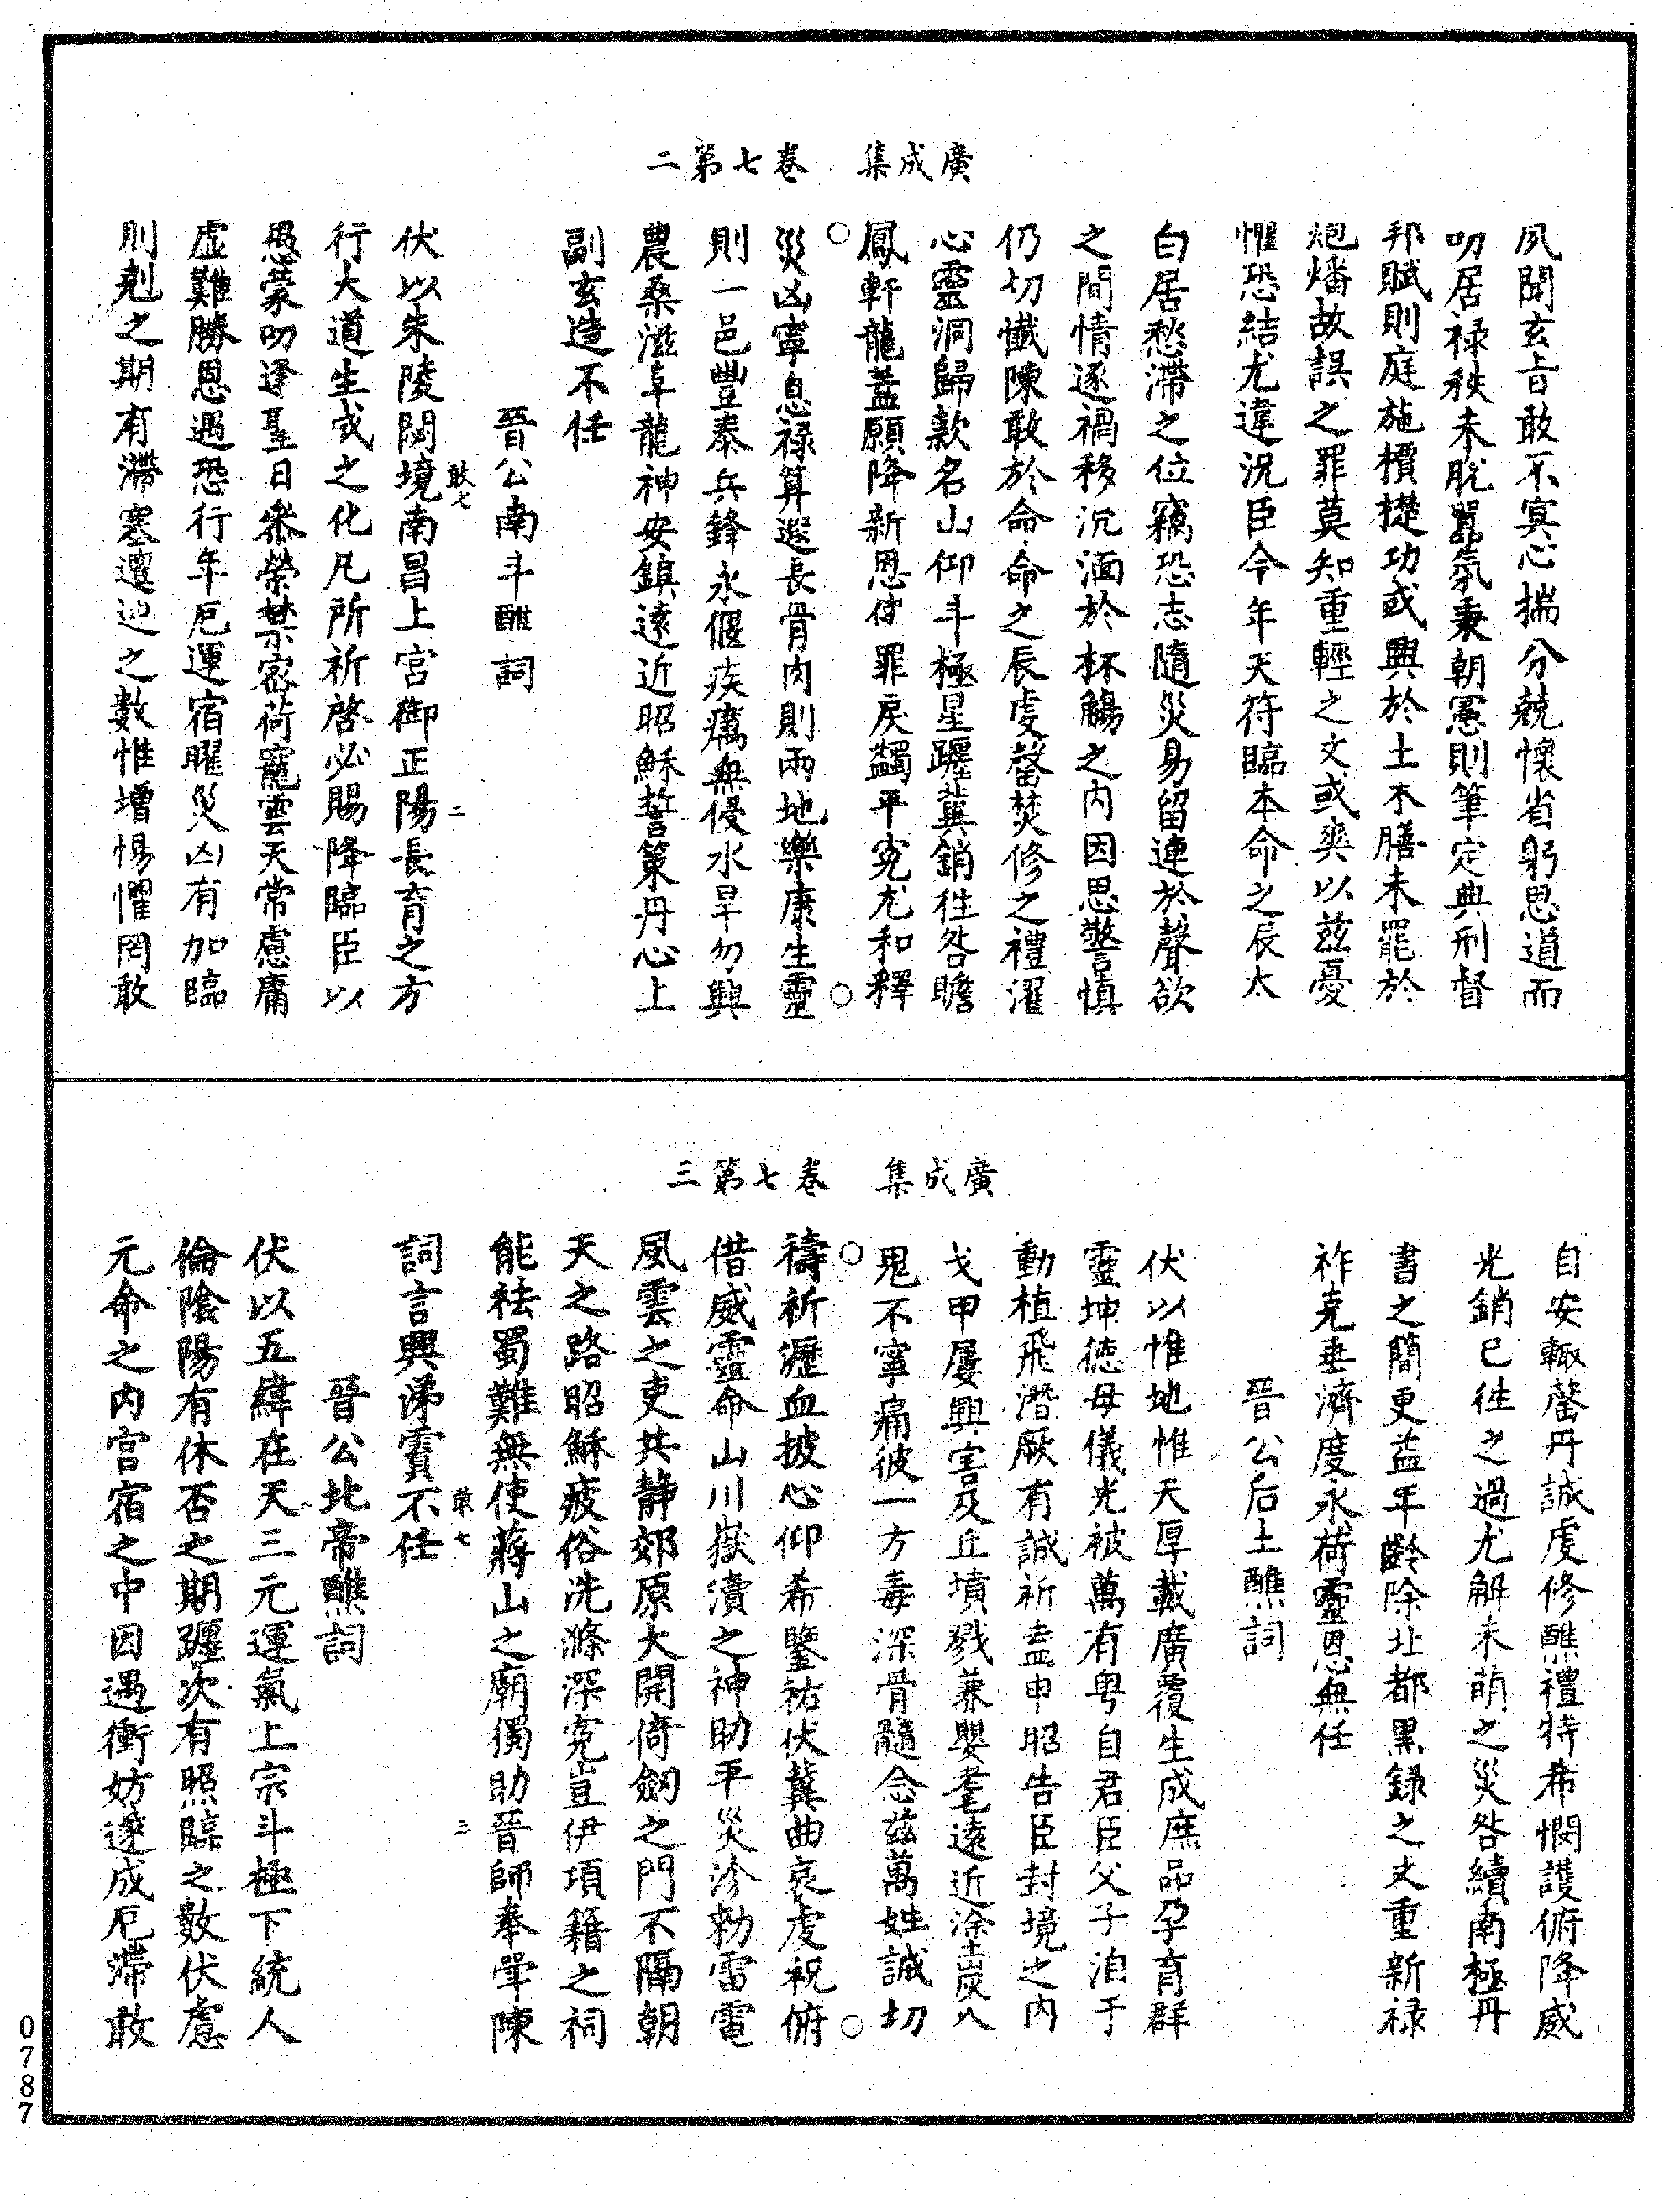 廣成集　卷七第二
夙聞玄旨敢不冥心揣分兢懷省躬思道而
叨居祿秩未脫囂氛秉朝憲則筆定典刑督
邦賦則庭施檟楚功或興於土木膳未罷於
炮燔故誤之罪莫知重輕之文或爽以茲憂
懼恐結尤違況臣今年天符臨本命之辰太
白居愁滯之位竊恐志隨災易留連於聲欲
之間情逐禍移沉湎於杯觴之內因思警慎
仍切懺陳敢於命命之辰虔罄焚修之禮濯
心靈洞歸款名山仰斗極星躔冀銷往咎瞻
鳳軒龍蓋願降新恩使罪戾蠲平冤尤和釋
災凶寧息祿算遐長骨肉則兩地樂康生靈
則一邑豐泰兵鋒永偃疾癘無侵水旱勿興
農桑滋阜龍神安鎮遠近昭穌誓策丹心上
副玄造不任
晉公南斗醮詞
伏以朱陵闕境南昌上宮御正陽長育之方
行大道生成之化凡所祈啓必賜降臨臣以
愚蒙叨逢聖日叅榮禁密荷寵雲天常慮庸
虛難勝恩遇恐行年厄運宿曜災凶有加臨
則剋之期有滯塞邅迍之數惟增惕懼罔敢
廣成集　卷七第三
自安輙罄丹誠虔修醮禮特希憫護俯降威
光銷已往之過尤解未萌之災咎續南極丹
書之簡更益年齡除北都黑錄之文重新祿
祚克垂濟度永荷靈恩無任
晉公后土醮詞
伏以惟地惟天厚載廣覆生成庶品孕育群
靈坤德母儀光被萬有粵自君臣父子洎于
動植飛潛厥有誠祈盍申昭告臣封境之內
戈甲屢興害及丘墳戮兼嬰耄遠近塗炭人
鬼不寧痛彼一方毒深骨髓念茲萬姓誠切
禱祈瀝血披心仰希鑒祐伏冀曲哀虔祝俯
借威靈命山川嶽瀆之神助平災沴勑雷電
風雲之吏共靜郊原大開倚劒之門不隔朝
天之路昭穌疲俗洗滌深冤豈伊項籍之祠
能祛蜀難無使蔣山之廟獨助晉師奉牢陳
詞言興涕霣不任
晉公北帝醮詞
伏以五緯在天三元運氣上宗斗極下統人
倫陰陽有休否之期躔次有照臨之數伏慮
元命之內宫宿之中因遇衝妨遂成厄滯敢
0787